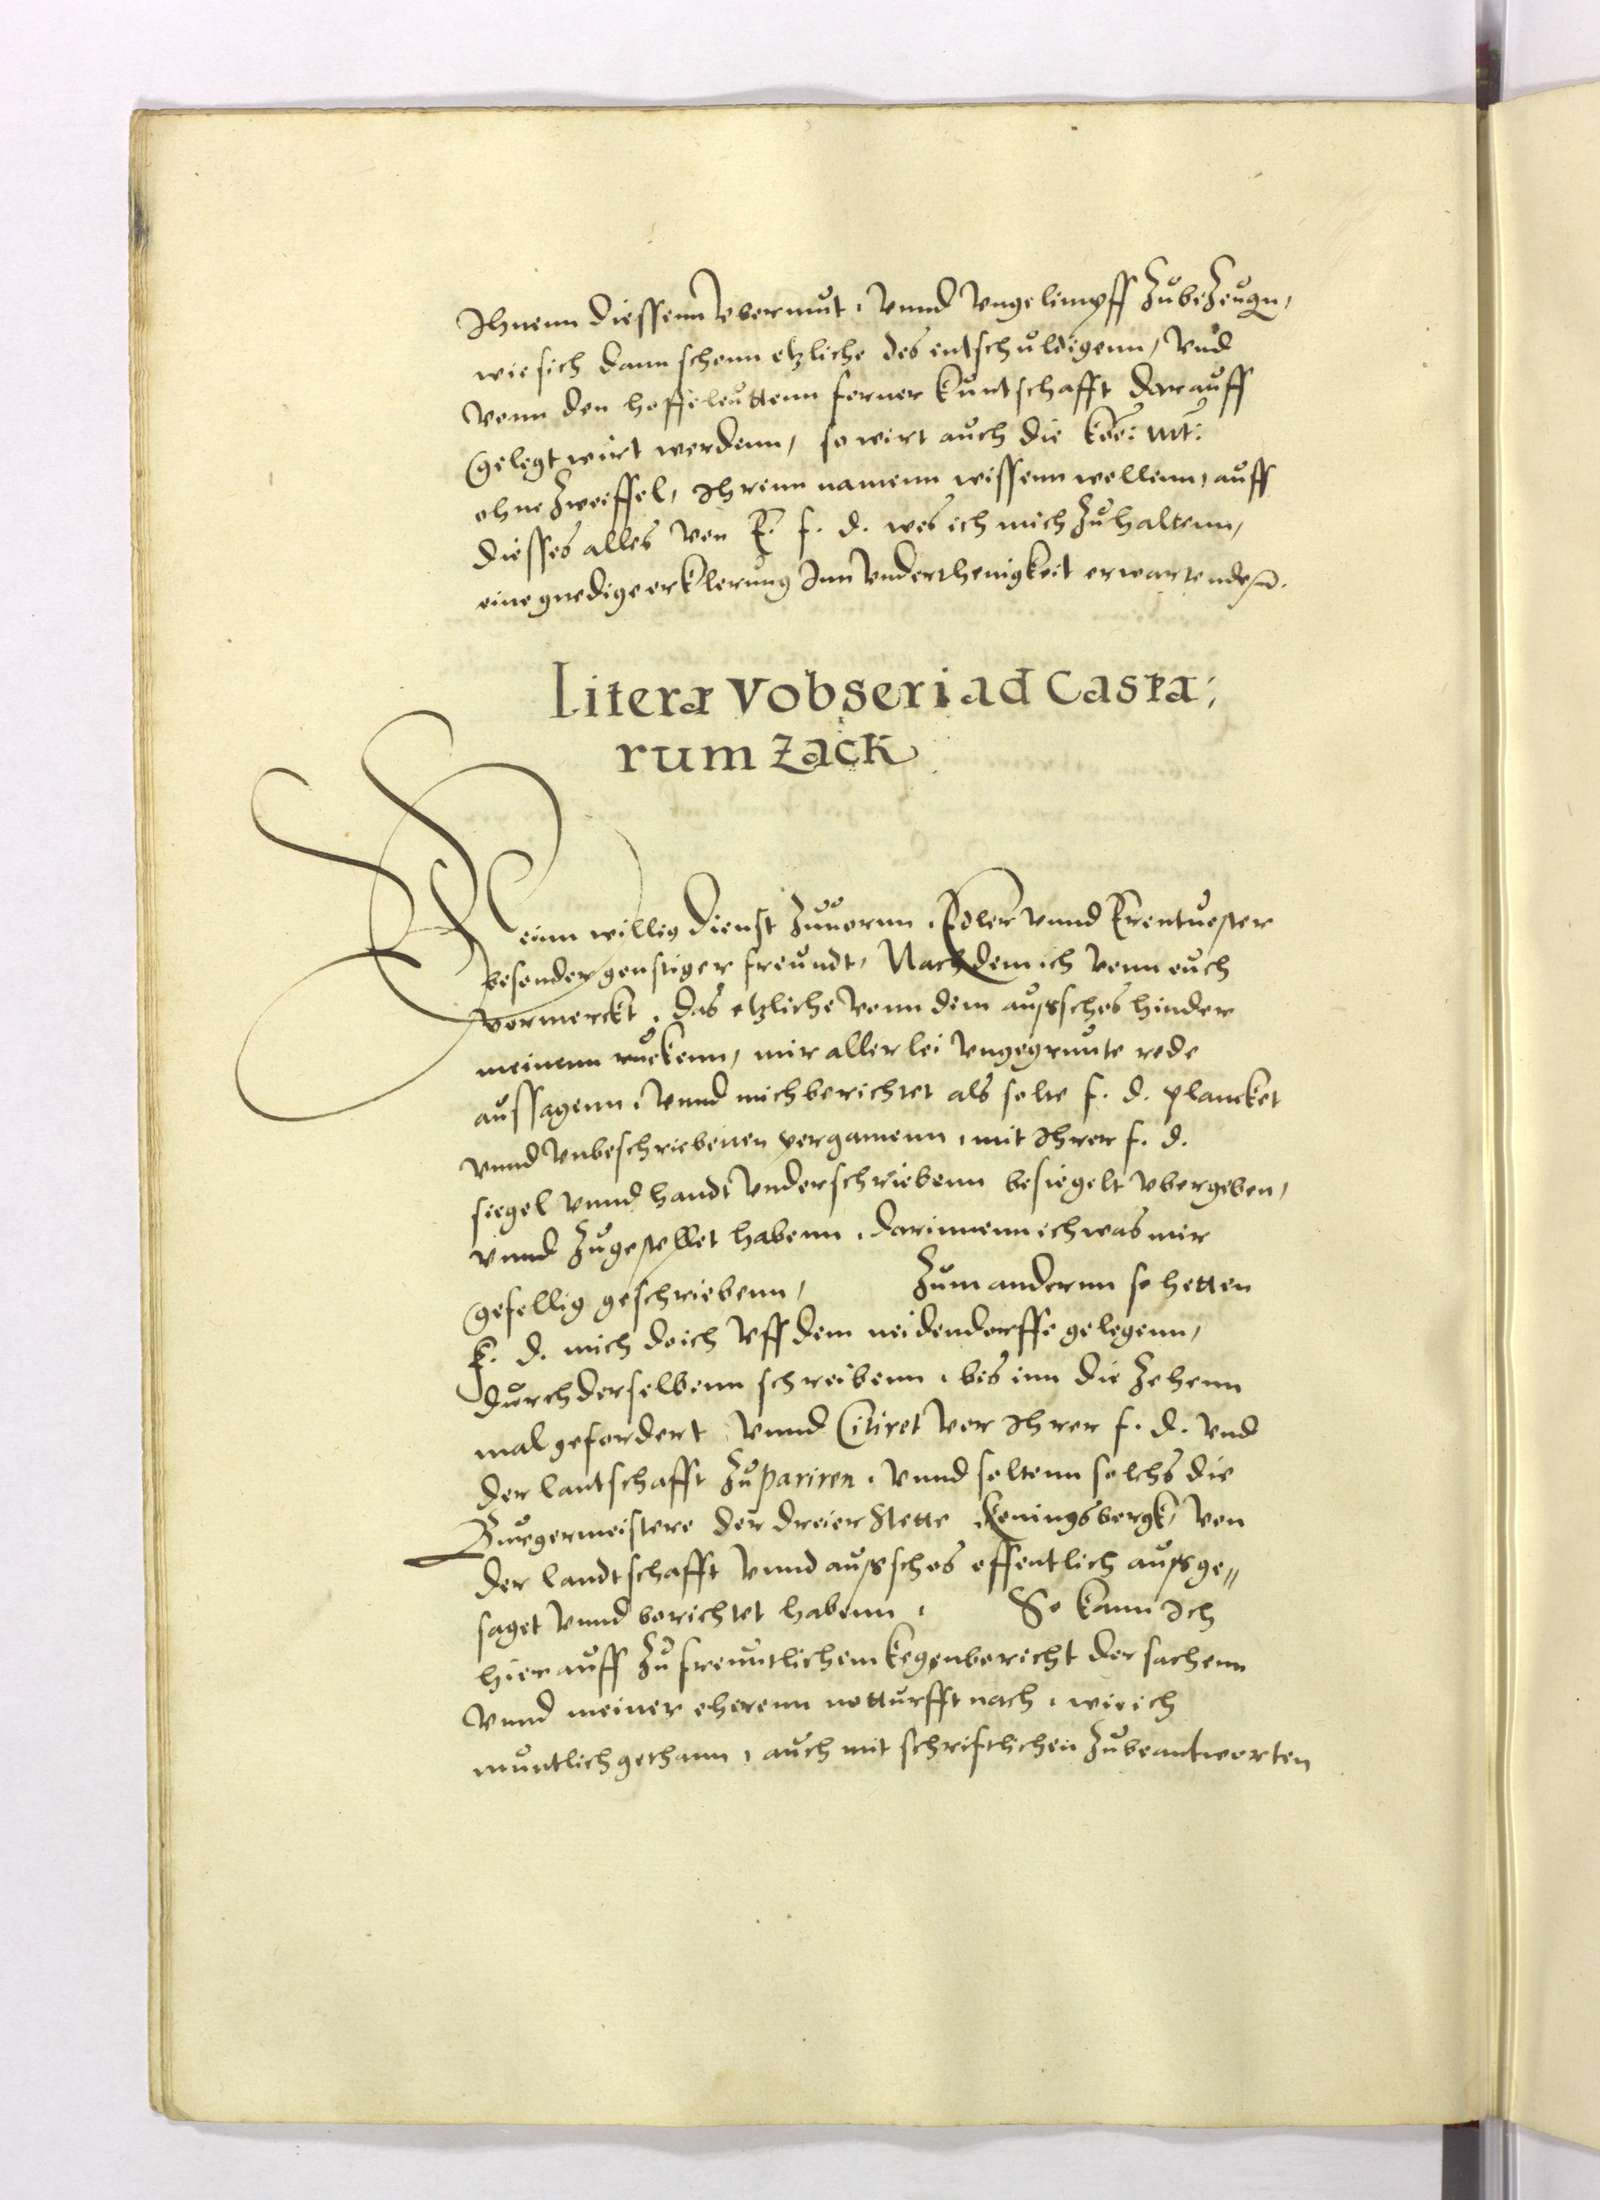 Ihnenn diessenn Vbermut, Vnnd Vngelimpff zubezeugn,
wie sich dann schonn etzliche des entschuldigenn, Vnd
Vonn den hoffeleuttenn ferner kuntschafft darauff
gelegt wirt werdenn, so wirt auch die koe: Mt:
ohne zweiffel, Ihrenn namenn wissenn wollenn, auff
diesses alles von E. f. d. wes ich mich zuhaltenn,
eine gnedige erklerung Inn Vnderthenigkeit erwartende.
Literæ Vobseri ad Caspa:
rum Zack
Meinn willig dienst zuuornn, Edler vnnd Erentuester
besonder gonstiger freundt, Nachdem ich vonn euch
vormerckt, das etzliche vonn dem ausschos hinder
meinenn ruckenn, mir allerlei Vngegrunte rede
aussagenn, Vnnd mich berichtet als solte f. d. plancket
vnnd Vnbeschriebenen pergamenn, mit Ihrer f. d.
siegel vnnd handt Vnderschriebenn besiegelt Vbergeben,
vnnd zugestellet habenn, darinnenn ich was mir
gefellig geschriebenn, Zum andernn so hetten
f. d. mich do ich Vff dem neidendorffe gelegenn,
durch derselbenn schreibenn, bis inn die zehenn
mal gefordert Vnnd Citiret vor Ihrer f. d. Vnd
der lantschafft zu pariren, vnnd soltenn solchs die
Burgermeistere der dreier Stette Koningsbergk, von
der landtschafft Vnnd ausschos offentlich ausge„
saget Vnnd berichtet habenn, So kann Ich
hierauff zu freuntlichem kegenbericht der sachenn
Vnnd meiner eherenn notturfft nach, wie ich
muntlich gethann, auch mit schriftlichen zubeantworten